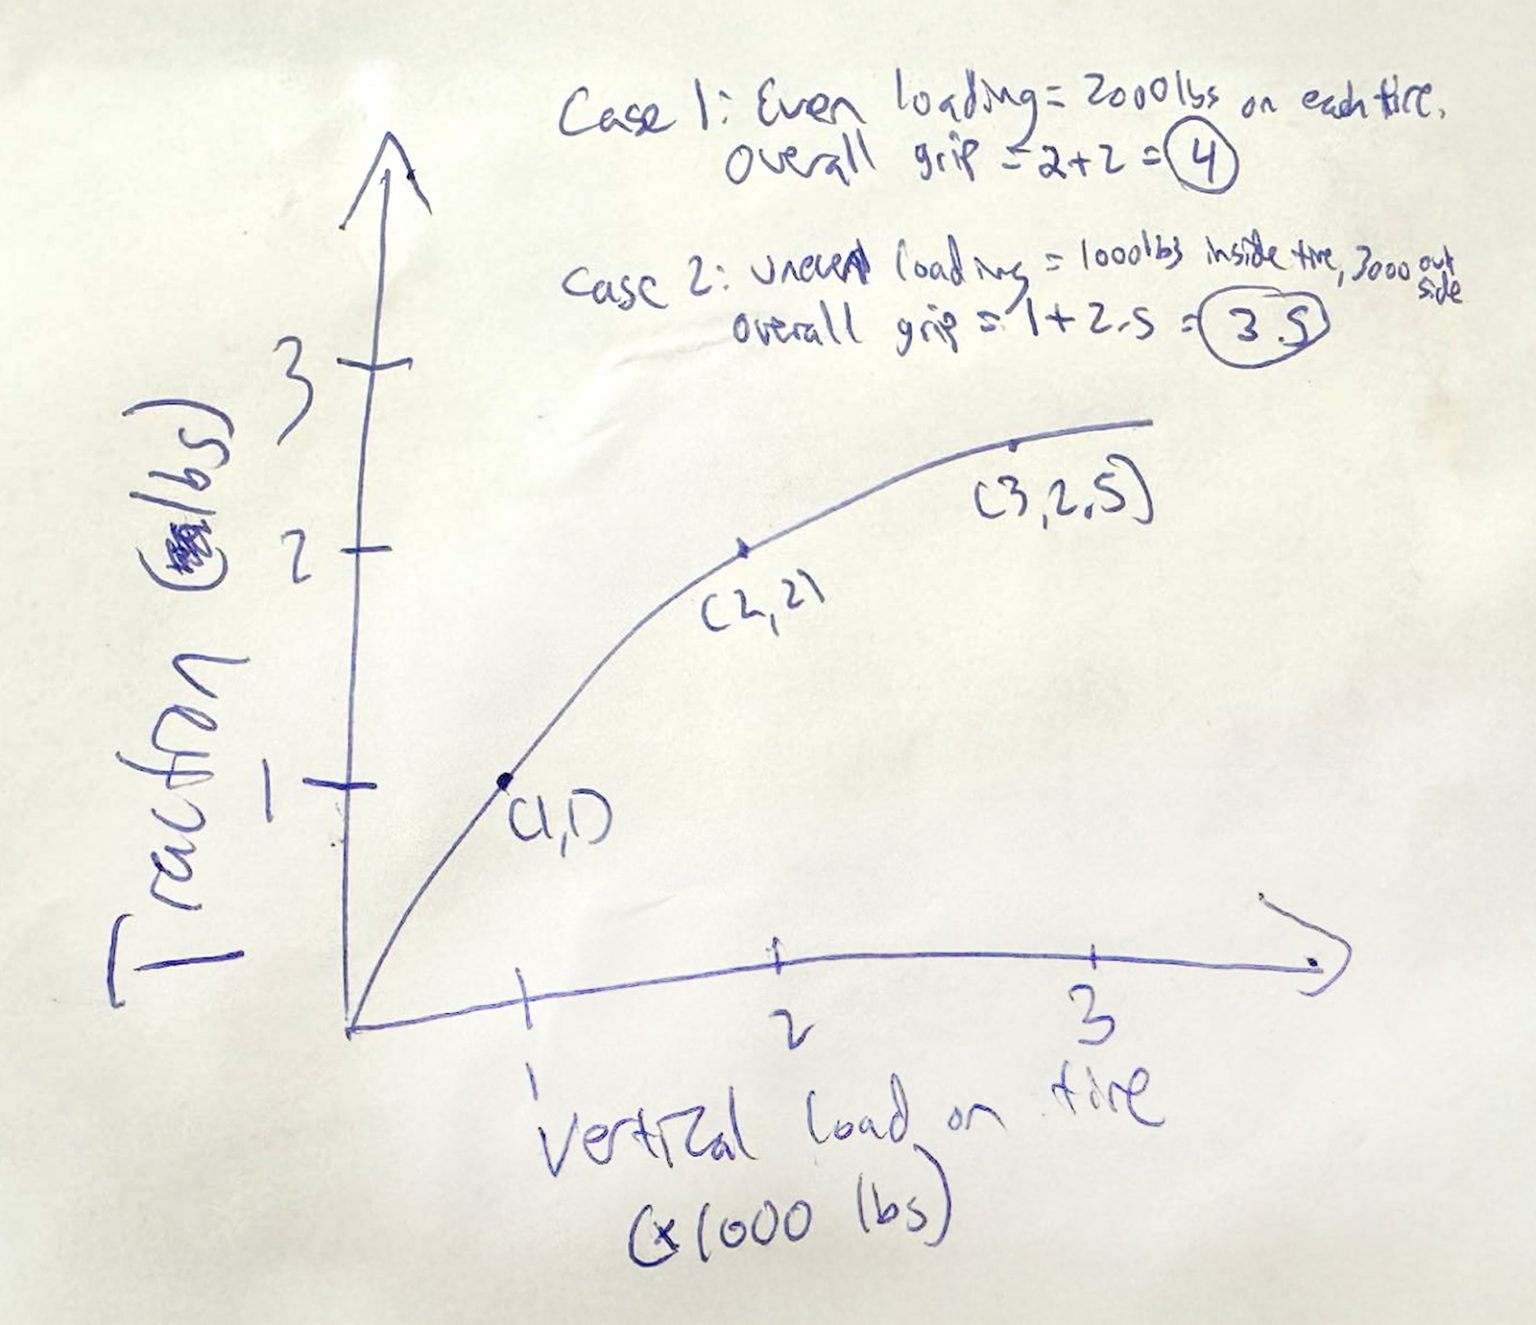 Case 1: Even loading = 2000 lbs on each tire.
overall grip = 2+2 = 4
Case 2: uneven loading = 1000lbs inside tire, 3000 out
side
overall grip = 1+2.5 = 3.5
3
Traction (lbs)
(3,2.5)
2
(2,2)
1
(1,1)
1
2
3
Vertical load on tire
(x1000 lbs)